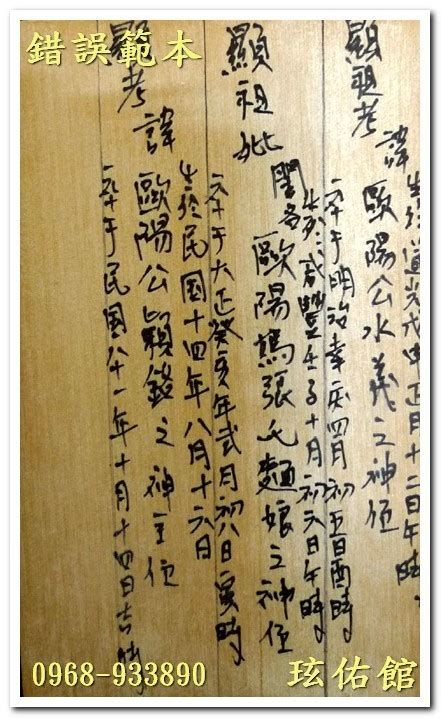 錯誤範本
顯祖考
諱
生於道光戊申正月十二日午時
歐陽公水義之神位
卒于明治辛亥四月初五日酉時
生於咸豐壬子十月初六日午時
顯祖妣
閨名
歐陽媽張氏麵娘之神位
卒于大正癸亥年弍月初八日寅時
生於民国十四年八月十六日
顯考
諱
歐陽公顯錢之神主位
卒于民国八十一年十月十四日吉時
0968-933890
玹佑館